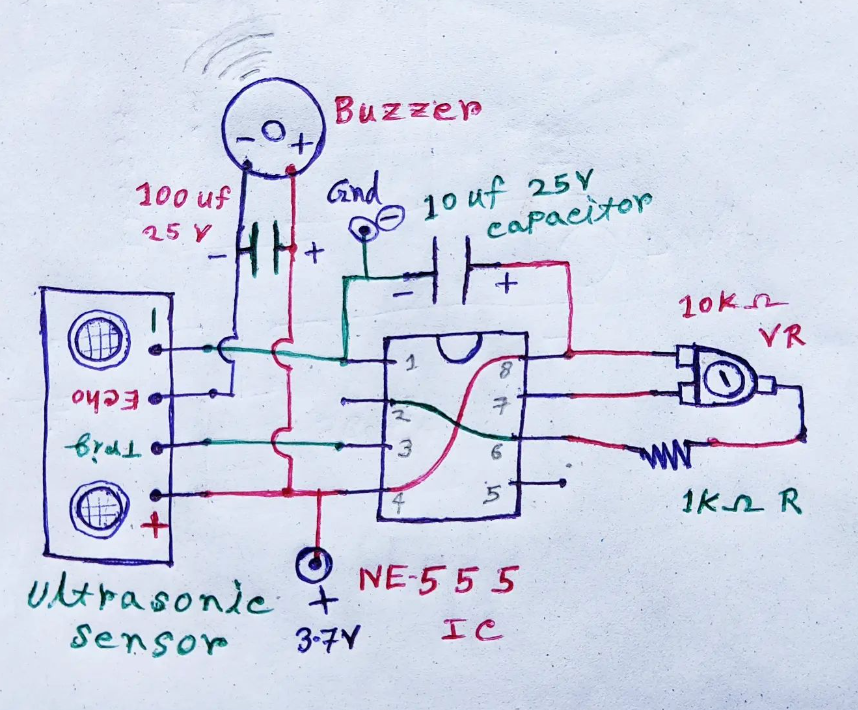 Buzzer
- +
100 uf
25 V
- +
Gnd
-
10 uf 25V
capacitor
- +
10K Ω
VR
-
Echo
Trig
+
1 8
2 7
3 6
4 5
1K Ω R
Ultrasonic
sensor
+
3.7V
NE-555
IC